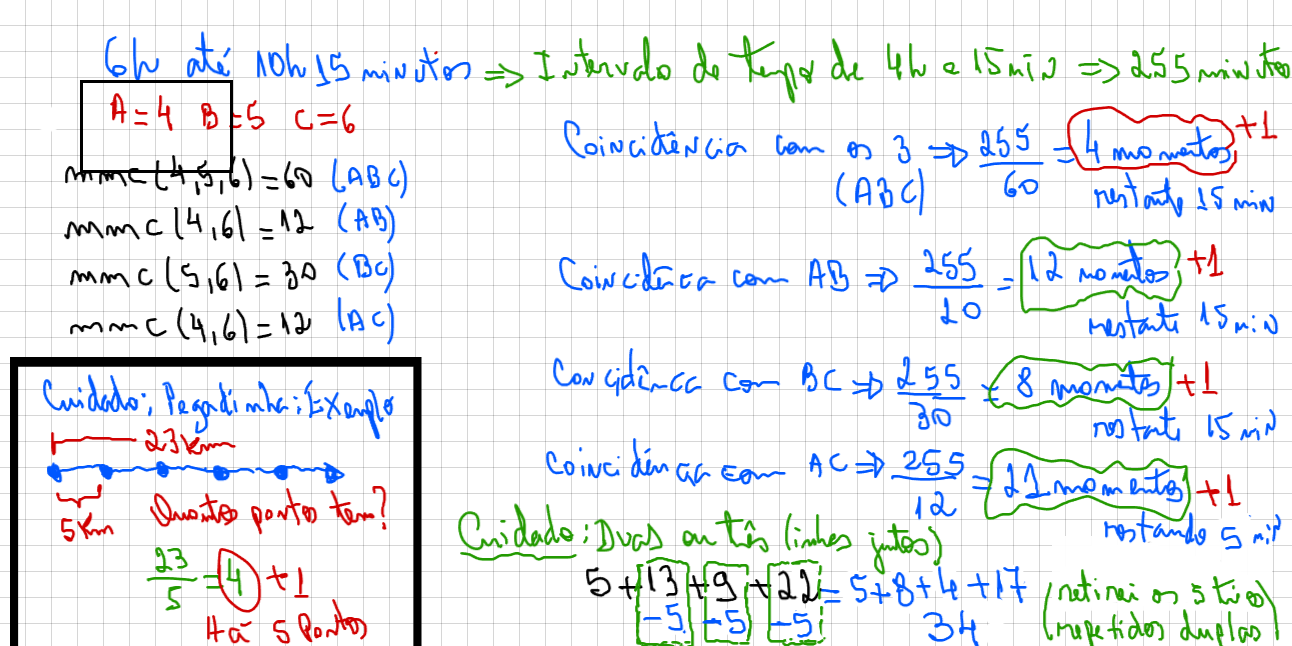 6h até 10h 15 minutos => Intervalo de tempo de 4h e 15 min => 255 minutos
A=4 B=5 C=6
mmc(4,5,6)=60 (ABC)
mmc(4,6)=12 (AB)
mmc(5,6)=30 (BC)
mmc(4,6)=12 (AC)
Coincidência com os 3 => 255/60 = 4 momentos +1
(ABC) restante 15 min
Coincidênca com AB => 255/20 = 12 momentos +1
restante 15 min
Concidênca com BC => 255/30 = 8 momentos +1
restante 15 min
Coincidência com AC => 255/12 = 21 momentos +1
restando 5 min
Cuidado; Pegadinha; Exemplo
23 km
5 km Quantos pontos tem?
23/5 = 4 +1
Há 5 Pontos
Cuidado: Duas ou três (linhas juntos)
5+13+9+22=5+8+4+17
-5 -5 -5 34
(retirei os 5
repetidos duplas)